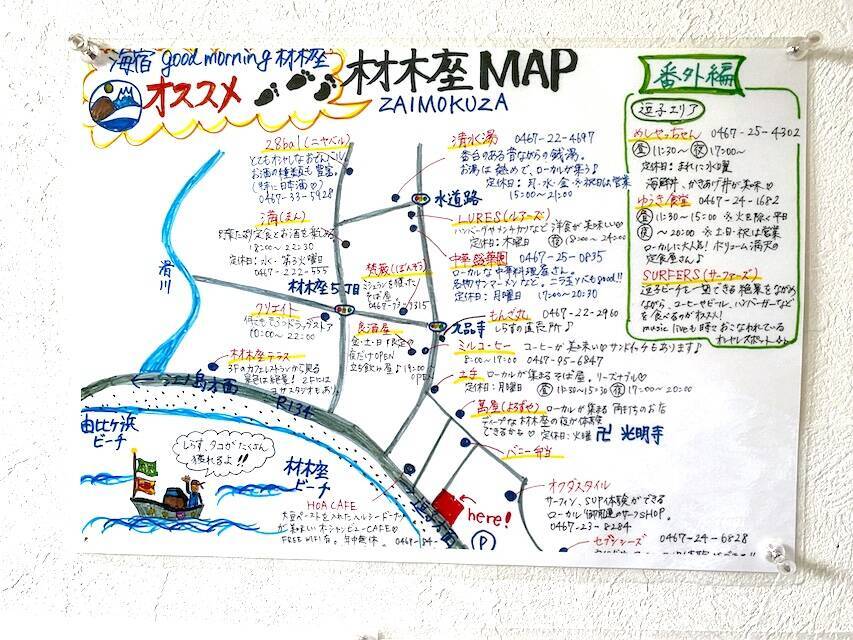 海宿 good morning 材木座
オススメ
材木座 MAP
ZAIMOKUZA
28bal (ニヤバル)
とてもオシャレなおでんバル
お酒の種類も豊富。
(特に日本酒♡)
0467-33-5928
満(まん)
定食とお酒を楽しめる
18:00〜22:30
定休日:水・第3火曜日
0467-222-555
クリエイト
ドラッグストア
10:00〜22:00
材木座テラス
3Fのカフェレストランから見る
景色は絶景! 2Fには
ヨガスタジオもあり
滑川
江ノ島方面
R134
由比ヶ浜
ビーチ
しらす、タコがたくさん
獲れるよ!!
材木座
ビーチ
梵蔵(ぼんぞう)
ミシュランを獲った
そば屋
0467-73-7315
材木座5丁目
良酒屋
金・土・日 限定の
夜だけOPEN
立ち飲み屋♪ 19:00
OPEN
清水湯 0467-22-4697
番台のある昔ながらの銭湯。
お湯は熱めで、ローカルが集う♪
定休日:月・水・金 ※祝日は営業
15:00〜21:00
水道路
LURES(ルアーズ)
ハンバーグやメンチカツなど洋食が美味しい♡
定休日:木曜日 夜 18:00〜24:00
中華 0467-25-0835
ローカルな中華料理屋さん。
名物サンマーメンなど。ニラ玉ソバもgood!!
定休日:月曜日 17:00〜20:30
もんざ丸 0467-22-2960
しらすの直売所♪
九品寺
ミルコーヒー コーヒーが美味しい♡サンドイッチもあります♪
8:00〜17:00 0467-95-6847
土手 ローカルが集まるそば屋。リーズナブル♡
定休日:月曜日 昼 11:30〜15:30 夜 17:00〜20:00
萬屋(よろずや) ローカルが集まる 角打ちのお店
ディープな材木座の夜が体験
できるかも♡ 定休日:火曜
卍 光明寺
バニー弁当
オクダスタイル
サーフィン、SUP体験ができる
ローカル御用達のサーフSHOP。
0467-23-8284
HOA CAFE
大豆ペーストを入れたヘルシードーナツ
が美味しいオーシャンビューCAFE♡
FREE WIFI有。年中無休。 0467-84-
逗子方面
here!
P
セブンシーズ 0467-24-6828
番外編
逗子エリア
めしやっちゃん 0467-25-4302
昼 11:30〜 夜 17:00〜
定休日:まれに水曜
海鮮丼、かきあげ丼が美味♡
ゆうき食堂 0467-24-1682
昼 11:30〜15:00 ※火を除く平日
〜20:00 ※土・日・祝は営業
ローカルに大人気! ボリューム満天の
定食屋さん♪
SURFERS(サーファーズ)
逗子ビーチを一望できる絶景をながめ
ながら、コーヒーやビール、ハンバーガーなど
を食べるのがオススメ!
music liveも時々おこなわれている
オシャレスポット♪